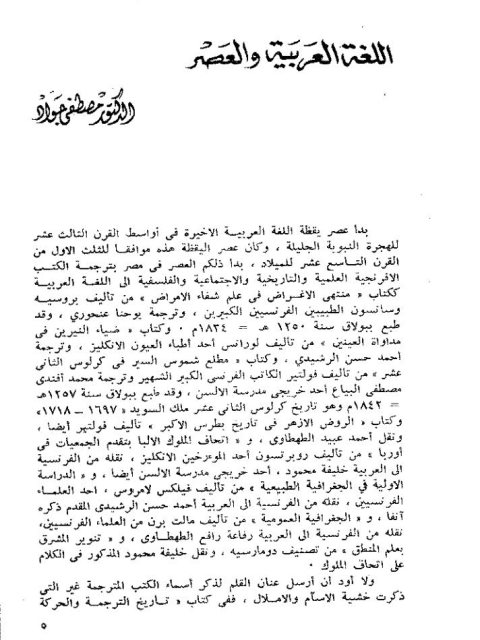 اللغة العربية والعصر
الدكتور مصطفى جواد
بدا عصر يقظة اللغة العربيـة الاخيرة فى أواسط القرن الثالث عشر
للهجرة النبوية الجليلة ، وكان عصر اليقظة هذه موافقـا للثلث الاول من
القرن التـاسع عشر للميلاد ، بدأ ذلكم العصر فى مصر بترجمة الكتـب
الافرنجية العلمية والتاريخية والاجتماعية والفلسفية الى اللغـة العربيـة
ككتاب « منتهى الاغـراض فى علم شفاء الامراض » من تأليف بروسيـه
وسانسون الطبيبين الفرنسيين الكبيرين ، وترجمة يوحنا عنحورى ، وقد
طبع ببولاق سنة ١٢٥٠ هـ = ١٨٣٤م ٠ وكتاب « ضياء النيرين فى
مداواة العينين » من تأليف لورانس أحد أطباء العيون الانكليز ، وترجمة
أحمد حسن الرشيدى ، وكتاب « مطلع شموس السير فى كرلوس الثانى
عشر » من تأليف فولتير الكاتب الفرنسى الكبير الشهير وترجمة محمد أفندى
مصطفى البياع أحد خريجى مدرسة الالسن ، وقد طبع ببولاق سنة ١٢٥٧هـ
= ١٨٤٢م وهو تاريخ كرلوس الثانى عشر ملك السويد «١٦٩٧ – ١٧١٨»
وكتاب « الروض الازهر فى تاريخ بطرس الاكبر » تأليف فولتهر أيضا ،
ونقل أحمد عبيد الطهطاوى ، و « اتحاف الملوك الالبا بتقدم الجمعيات فى
أوربا » من تأليف روبرتسون أحد المؤرخين الانكليز ، نقله من الفرنسية
الى العربية خليفة محمود ، أحد خريجى مدرسة الالسن أيضا ، و « الدراسة
الاولية فى الجغرافية الطبيعية » من تأليف فيلكس لامروس ، أحد العلمـاء
الفرنسيين ، نقله من الفرنسية الى العربية أحمد حسن الرشيدى المقدم ذكره
آنفا ، و « الجغرافية العمومية » من تأليف مالت برن من العلماء الفرنسيين،
نقله من الفرنسية الى العربية رفاعة رافع الطهطـاوى ، و « تنوير المشرق
بعلم المنطق » من تصنيف دومارسيه ، ونقل خليفة محمود المذكور فى الكلام
على اتحاف الملوك ٠
ولا أود أن أرسل عنان القلم لذكر أسماء الكتب المترجمة غير التى
ذكرت خشية الاسآم والامـلال ، ففى كتاب « تاريخ الترجمة والحركة
٥